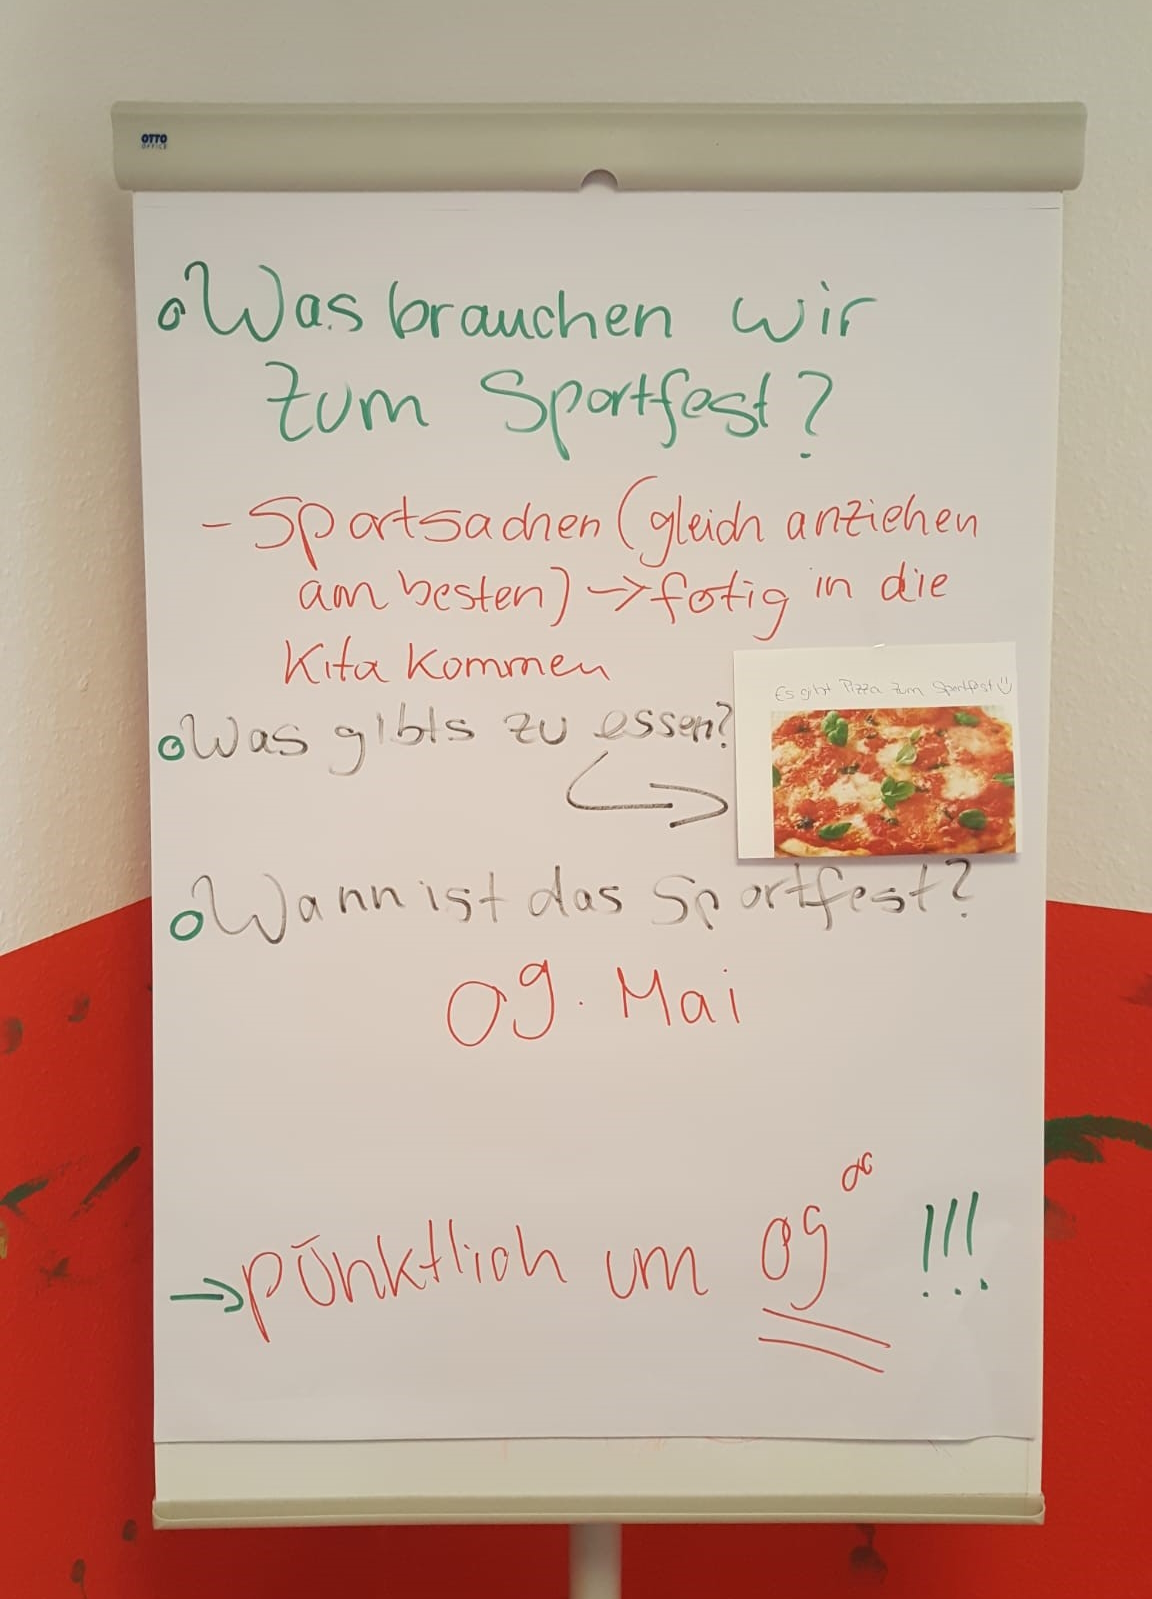 OTTO
OFFICE
Was brauchen wir
zum Sportfest?
- Sportsachen (gleich anziehen
am besten) → fertig in die
Kita kommen
Es gibt Pizza zum Sportfest
Was gibts zu essen?
Wann ist das Sportfest?
09. Mai
→ pünktlich um 09⁰⁰ !!!